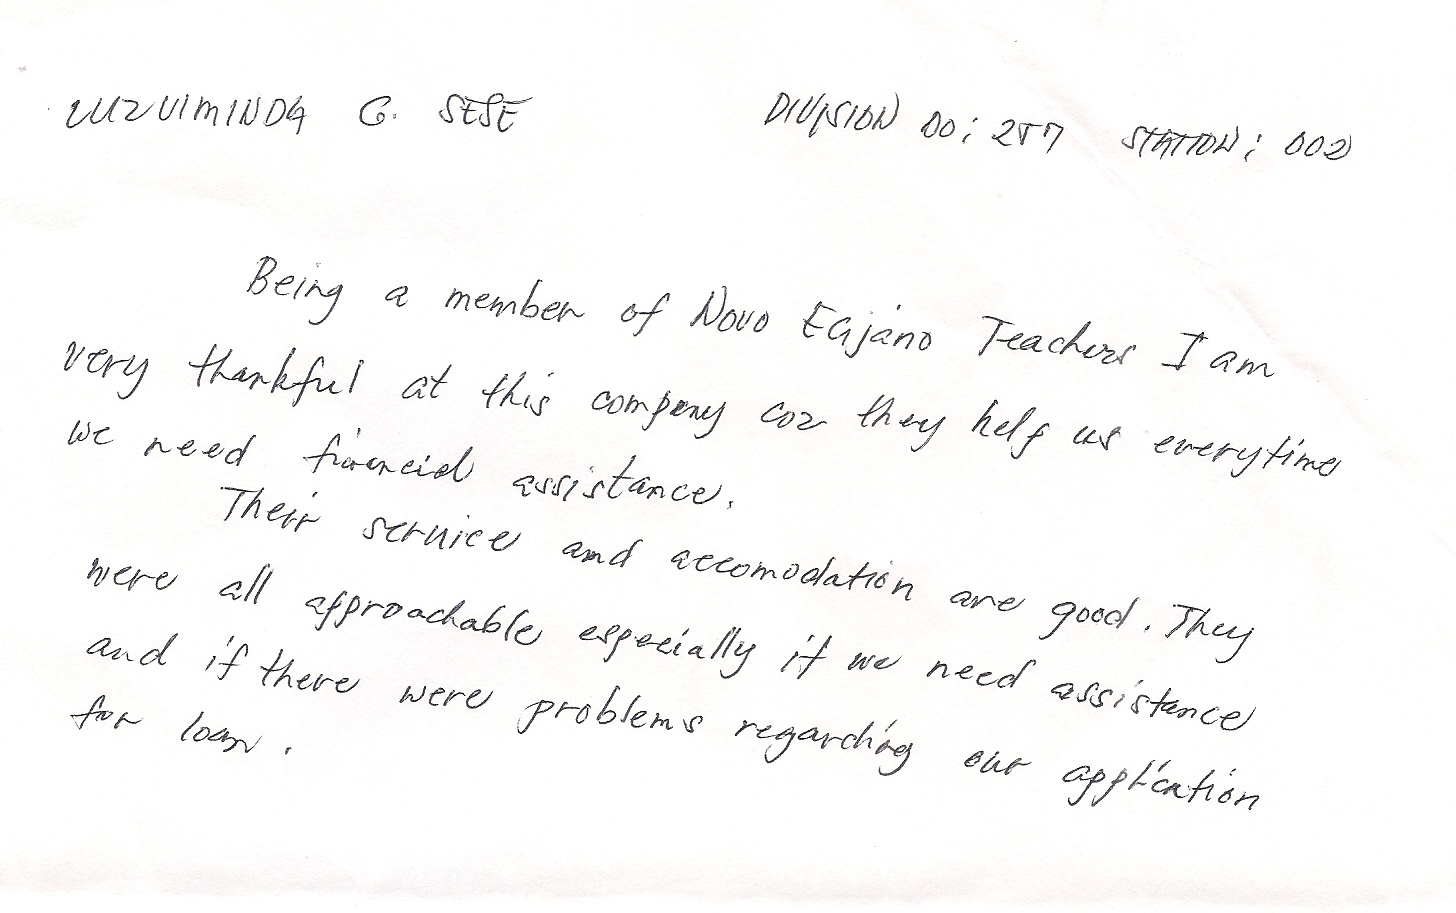 LUZVIMINDA G. SESE DIVISION 00: 257 STATION: 002
Being a member of Novo Ecijano Teachers I am
very thankful at this company coz they help us everytime
we need financial assistance.
Their service and accomodation are good. They
were all approachable especially if we need assistance
and if there were problems regarding our application
for loan.